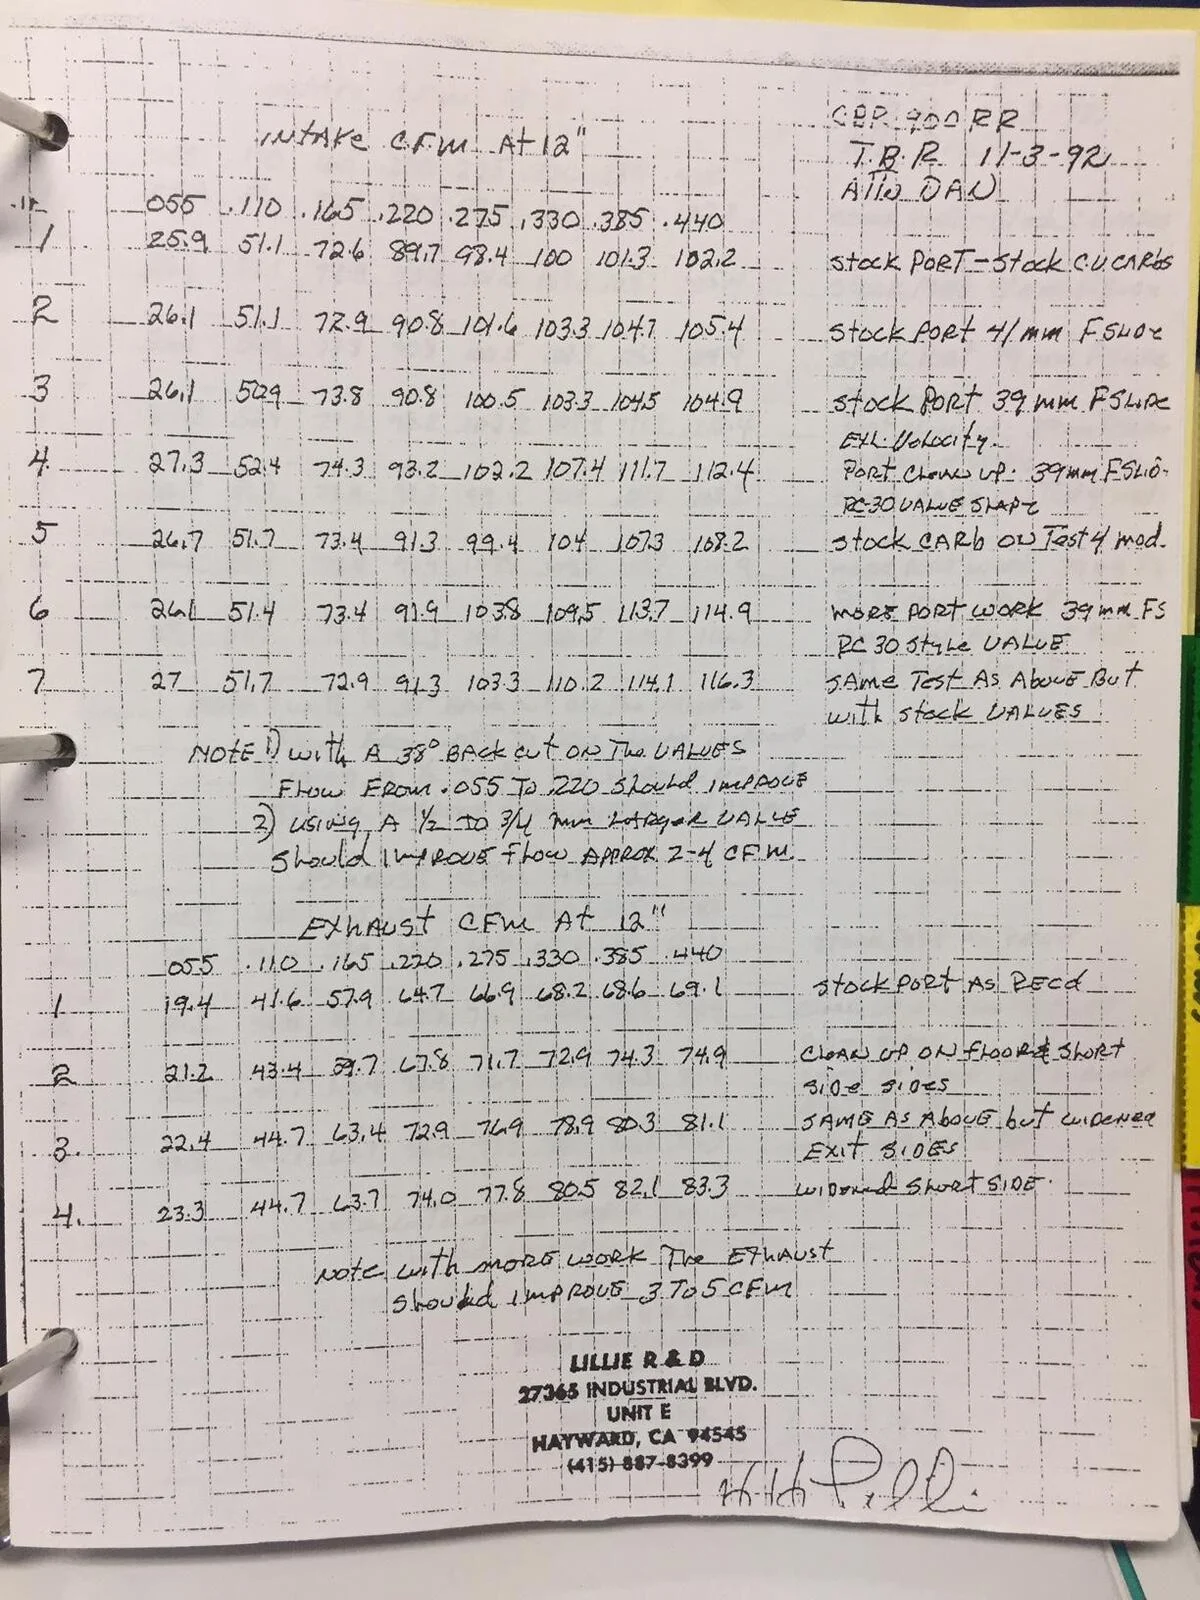 CBR 900RR
INTAKE CFM At 12"
T.B.R 11-3-92
Attn DAN
055 .110 .165 .220 .275 .330 .385 .440
1 25.9 51.1 72.6 89.7 98.4 100 101.3 102.2 Stock PORT - Stock C.V. CARbs
2 26.1 51.1 72.9 90.8 101.6 103.3 104.7 105.4 Stock PORT 41mm FSLIDe
3 26.1 50.9 73.8 90.8 100.5 103.3 104.5 104.9 Stock PORT 39mm FSLIDe
Velocity.
4. 27.3 52.4 74.3 93.2 102.2 107.4 111.7 112.4 PORT CleAN UP. 39mm FSLID-
RC-30 VALVE SHAPe
5 26.7 51.7 73.4 91.3 99.4 104 107.3 108.2 Stock CARb ON Test 4 mod.
6 26.1 51.4 73.4 91.9 103.8 109.5 113.7 114.9 MORE PORT WORK 39mm FS
RC 30 Style VALVE
7 27 51.7 72.9 91.3 103.3 110.2 114.1 116.3 SAMe Test AS Above But
with Stock VALVES
NOTE 1) with A 38° BACK cut ON The VALVES
FLOW FROM .055 TO .220 should IMPROVE
2) USING A 1/2 TO 3/4 mm LARger VALVE
Should IMPROVE flow APPROX 2-4 CFM
EXHAUST CFM At 12"
055 .110 .165 .220 .275 .330 .385 .440
1 19.4 41.6 57.9 64.7 66.9 68.2 68.6 69.1 Stock PORT AS RECd
2 21.2 43.4 59.7 67.8 71.7 72.9 74.3 74.9 CleAN UP ON flOOR & SHORT
Side SIDeS
3. 22.4 44.7 63.4 72.9 76.9 78.9 80.3 81.1 SAME AS ABOVE but WIDENED
EXIT SIDES
4. 23.3 44.7 63.7 74.0 77.8 80.5 82.1 83.3 WIDENED Short SIDE.
Note with MORE WORK The EXHAUST
Should IMPROVE 3 TO 5 CFM
LILLIE R & D
27365 INDUSTRIAL BLVD.
UNIT E
HAYWARD, CA 94545
(415) 887-8399